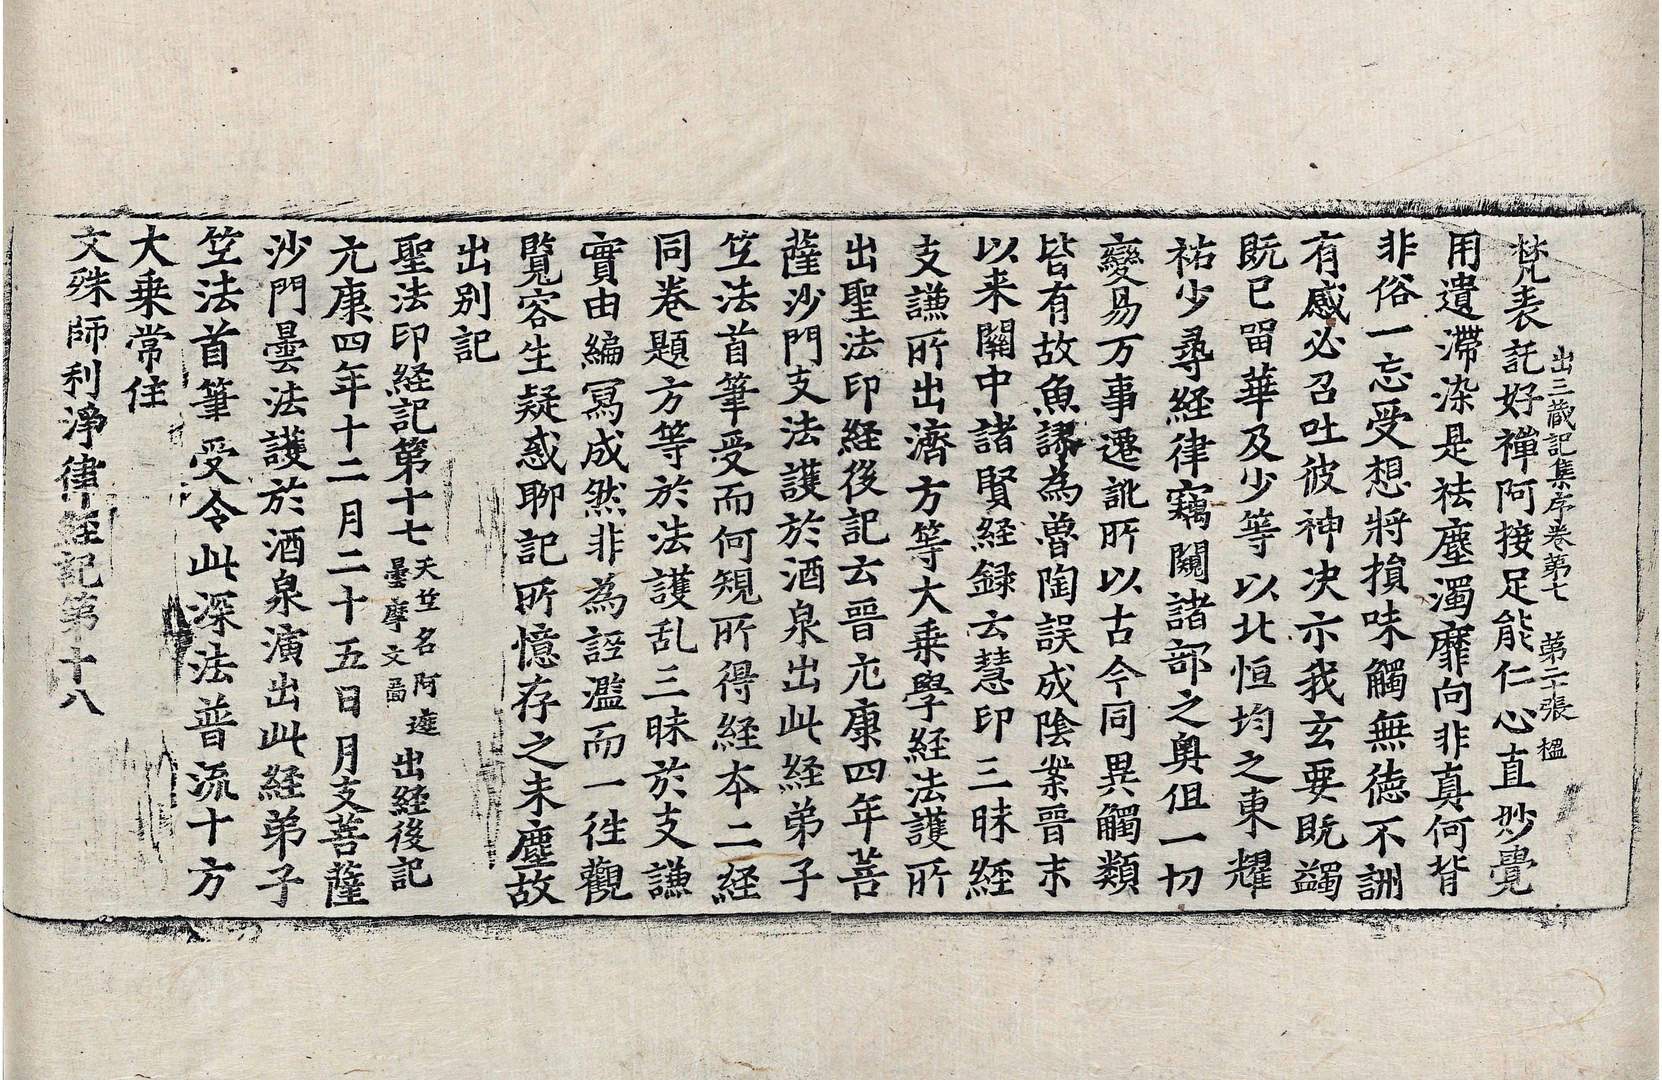 出三蔵記集序卷第七 第二十張 楹
梵表託好禪阿接足能仁心直妙覺
用遺滯染是祛塵濁靡向非真何背
非俗一忘受想將損味觸無德不詶
有感必召吐彼神决示我玄要既蠲
既已留華及少等以北恒均之東耀
祐少尋経律竊闚諸部之奥但一切
變易万事遷訛所以古今同異觸類
皆有故魚謬為魯陶誤成陰業晉末
以来關中諸賢経録云慧印三昧経
支謙所出濟方等大乗學経法護所
出聖法印経後記云晉元康四年菩
薩沙門支法護於酒泉出此経弟子
笁法首筆受而何規所得経本二経
同卷題方等於法護乱三昧於支謙
實由編冩成然非為誣濫而一往觀
覧容生疑惑聊記所憶存之末塵故
出别記
聖法印経記第十七 天笁名阿遬曇摩文啚 出経後記
元康四年十二月二十五日月支菩薩
沙門曇法護於酒泉演出此経弟子
笁法首筆受令此深法普流十方
大乗常住
文殊師利淨律経記第十八